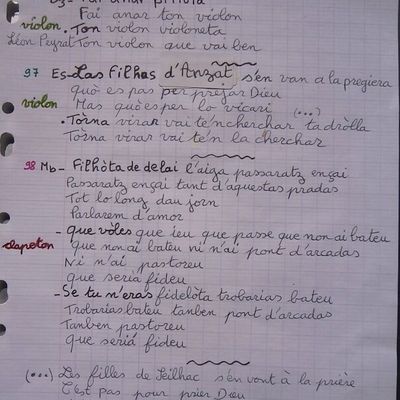 Fai anar ton violon
violon . Ton violon violoneta
Léon Peyrat Ton violon que vai ben
97 Es - Las filhas d'Anzat s'en van a la pregiera
quò es pas per prejar Dieu
violon Mas quò es per lo vicari (...)
. Torna virar vai te'n cherchar ta dròlla
Tòrna virar vai te'n la cherchar
98. Mb - Filhòta de delai l'aiga passaratz ençai
Passaratz ençai tant d'aquestas pradas
Tot lo long dau jorn
Parlarem d'amor
- que vòles que ieu que passe que non ai bateu
clapeton que non ai bateu ni n'ai pont d'arcadas
Ni n'ai pastoreu
que seria fideu
- Se tu n'eras fidelòta trobarias bateu
Trobarias bateu tanben pont d'arcadas
Tanben pastoreu
que seriá fideu
(...) Les filles de Seilhac s'en vont à la prière
C'est pas pour prier Dieu